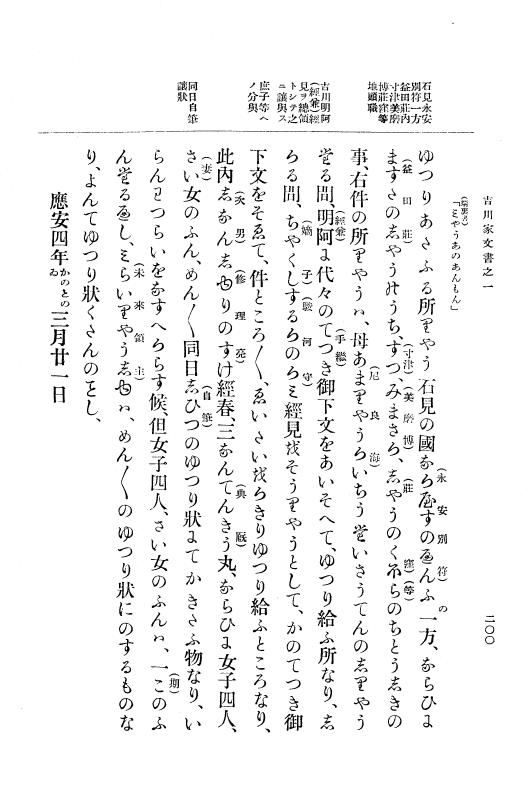 吉川家文書之一
二〇〇
(端裏書)
「ミやうあのあんもん」
石見永安
別符一方
益田莊内
寸津美磨
博莊窪等
地頭職
ゆつりあたふる所りやう石見の國なか屋すのへんふの一方、ならひに
(永安別符)
ますたの志やうのうち、すつ、みまさか、志やうのくホらのちとう志きの
(益田莊) (寸津) (美磨博) (莊窪)(等)
事、右件の所りやうハ、母あまりやうかいちうたいさうてんの志りやう
(尼良海)
吉川明阿
(經兼)經
見ヲ總領
トシテ之
ニ讓與ス
たる間、明阿に代々のてつき御下文をあいそへて、ゆつり給ふ所なり、志
(經兼) (手繼)
かる間、ちやくしするかのかミ經見をそうりやうとして、かのてつき御
(嫡子)(駿河守)
下文をそゑて、件ところ〳〵、ゑいたいをかきりゆつり給ふところなり、
庶子等ヘ
ノ分與
此内志なん志ゆりのすけ經春、三なんてんきう丸、ならひに女子四人、
(次男)(修理亮) (典厩)
同日自筆
讓狀
さい女のふん、めん〳〵同日志ひつのゆつり狀にてかきたふ物なり、い
(妻) (自筆)
らんわつらいをなすへからす候、但女子四人、さい女のふんハ、一このふ
(期)
んたるへし、ミらいりやう志ゆハ、めん〳〵のゆつり狀にのするものな
(未來領主)
り、よんてゆつり狀くたんのことし、
應安四年かのとのゐ三月廿一日